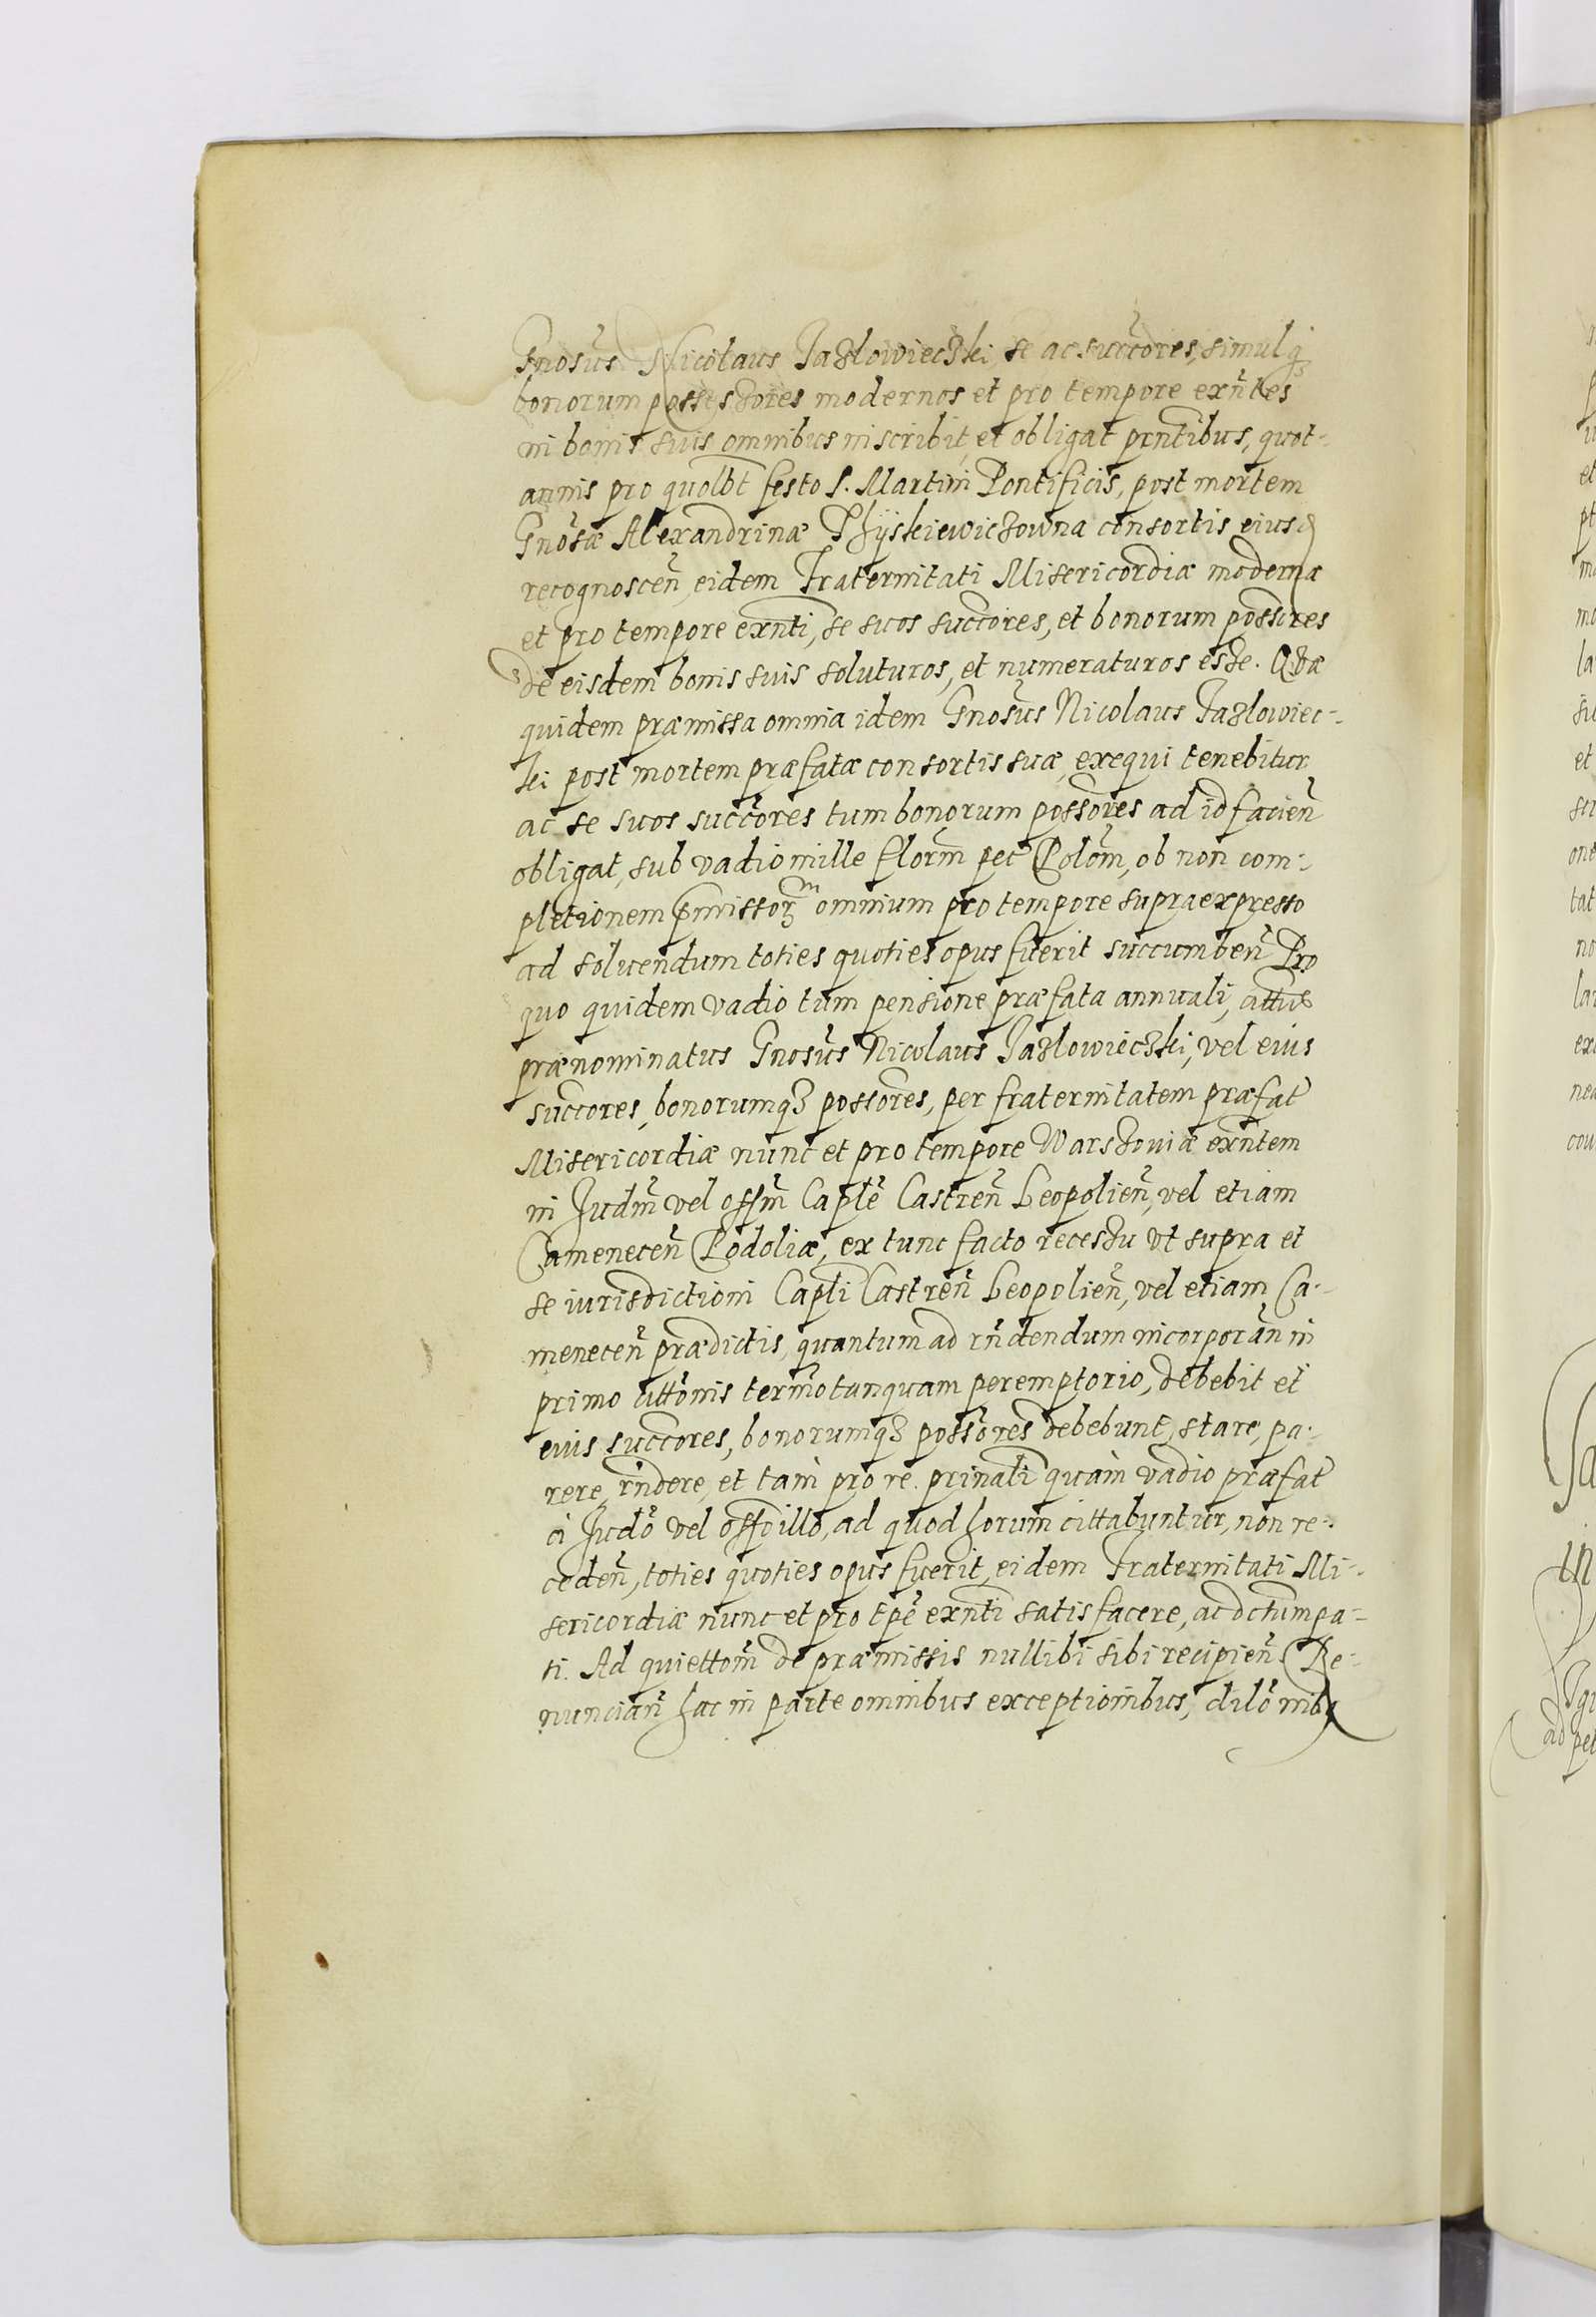 Gnosus Nicolaus Jazlowieczki se ac succores, simulq3
bonorum possessores modernos et pro tempore exntes
in bonis suis omnibus inscribit, et obligat prntibus, quot-
annis pro quolbt festo S. Martini Pontificis, post mortem
Gnosæ Alexandrinæ Thijskiewiczowna consortis eius
recognoscen, eidem Fraternitati Misericordiæ modernæ
et pro tempore exnti, se suos succores, et bonorum possores
de eisdem bonis suis soluturos, et numeraturos esse. Quæ
quidem præmissa omnia idem Gnosus Nicolaus Jazlowiec-
ki post mortem præfatæ consortis suæ, exequi tenebitur
ac se suos succores tum bonorum possores ad id facien
obligat, sub vadio mille florm pec Polom, ob non com-
pletionem pmissoꝝ omnium pro tempore supraexpresso
ad soluendum toties quoties opus fuerit succumben Pro
quo quidem vadio tum pensione præfata annuali, cittus
prænominatus Gnosus Nicolaus Jazlowieczki, vel eius
succores, bonorumq3 possores, per fraternitatem præfat
Misericordiæ nunc et pro tempore Warszouiæ exntem
in Judm vel offm Caple Castren Leopolien, vel etiam
Camenecen Podoliæ, ex tunc facto recessu vt supra et
se iurisdictioni Capli Castren Leopolien, vel etiam Ca-
menecen prædictis, quantum ad rndendum incorporan in
primo cittonis termo tanquam peremptorio, debebit et
eius succores, bonorumq3 possores debebunt, stare, pa-
rere, rndere, et tam pro re prinali quam vadio præfat
ci Judo vel offo illo, ad quod horum cittabuntur, non re-
ceden, toties quoties opus fuerit, eidem Fraternitati Mi-
sericordiæ nunc et pro tpe exnti satisfacere, ac dctum pa-
ti. Ad quiettom de præmissis nullibi sibi recipien Re-
nuncian hac in parte omnibus exceptionibus, dilonibq